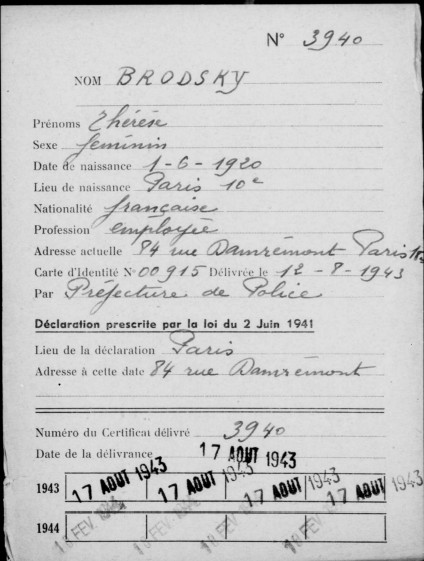 N° 3940
NOM BRODSKY
Prénoms Thérèse
Sexe féminin
Date de naissance 1-6-1920
Lieu de naissance Paris 10e
Nationalité française
Profession employée
Adresse actuelle 84 rue Damrémont Paris
Carte d'Identité N° 00915 Délivrée le 12-8-1943
Par Préfecture de Police
Déclaration prescrite par la loi du 2 Juin 1941
Lieu de la déclaration Paris
Adresse à cette date 84 rue Damrémont
Numéro du Certificat délivré 3940
Date de la délivrance 17 AOUT 1943
1943 17 AOUT 1943 17 AOUT 1943 17 AOUT 1943 17 AOUT 1943
1944 FEV FEV